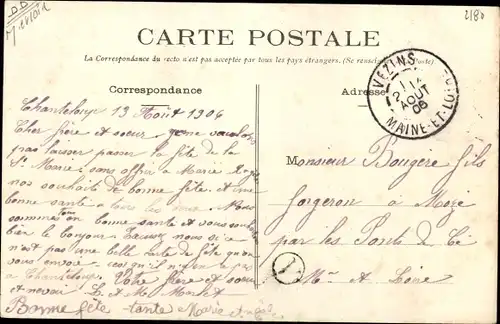 M et Loire
2180
CARTE POSTALE
La Correspondance du recto n'est pas acceptée par tous les pays étrangers. (Se renseigner à la Poste)
Correspondance
Adresse
VEZINS
14
AOUT
06
MAINE-ET-LOIRE
Chanteloup 13 Août 1906
Cher frère et soeur je ne voulais
pas laisser passer la fête de la
Ste Marie sans offrir a Marie
nos souhaits de bonne fête et une
bonne santé a tous
sommes ton en bonne santé et vous souhaitons
bien le bonjour
n'est pas une belle carte de fête qu'on
vous envoie
a Chanteloup Votre frère et soeur
et neveu L. et M.
Bonne fête tante Marie
Monsieur Bougère fils
forgeron à Mozé
par les Ponts de Cé
Mne et Loire